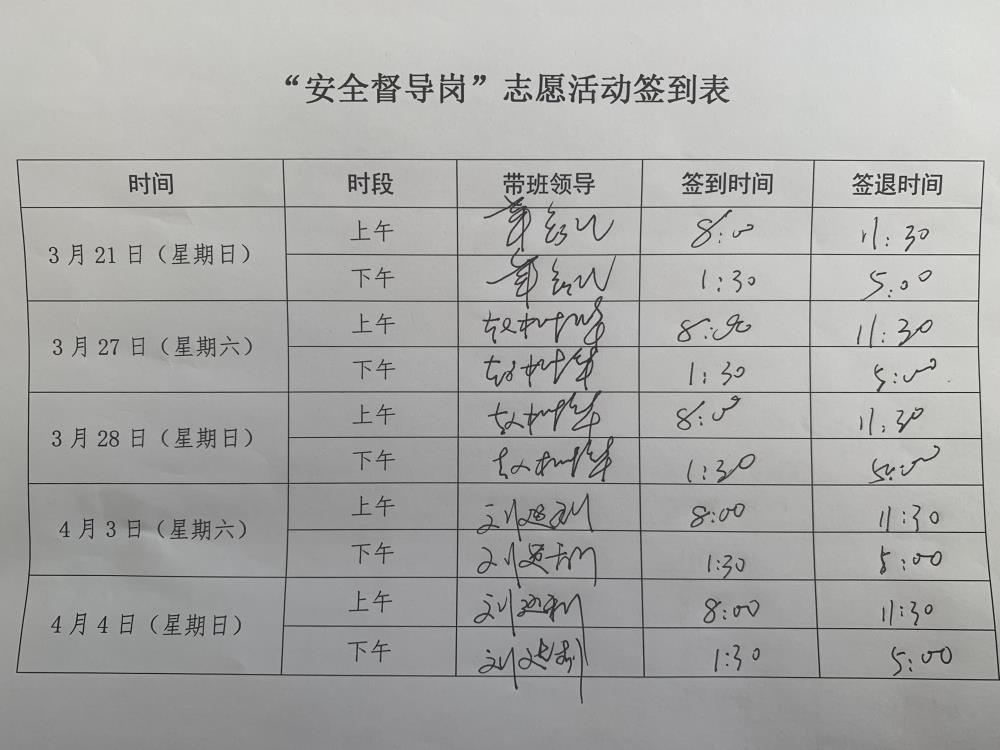 “安全督导岗”志愿活动签到表
时间 时段 带班领导 签到时间 签退时间
3月21日（星期日） 上午 8:00 11:30
下午 1:30 5:00
3月27日（星期六） 上午 8:00 11:30
下午 1:30 5:00
3月28日（星期日） 上午 8:00 11:30
下午 1:30 5:00
4月3日（星期六） 上午 刘 8:00 11:30
下午 刘 1:30 5:00
4月4日（星期日） 上午 刘 8:00 11:30
下午 刘 1:30 5:00